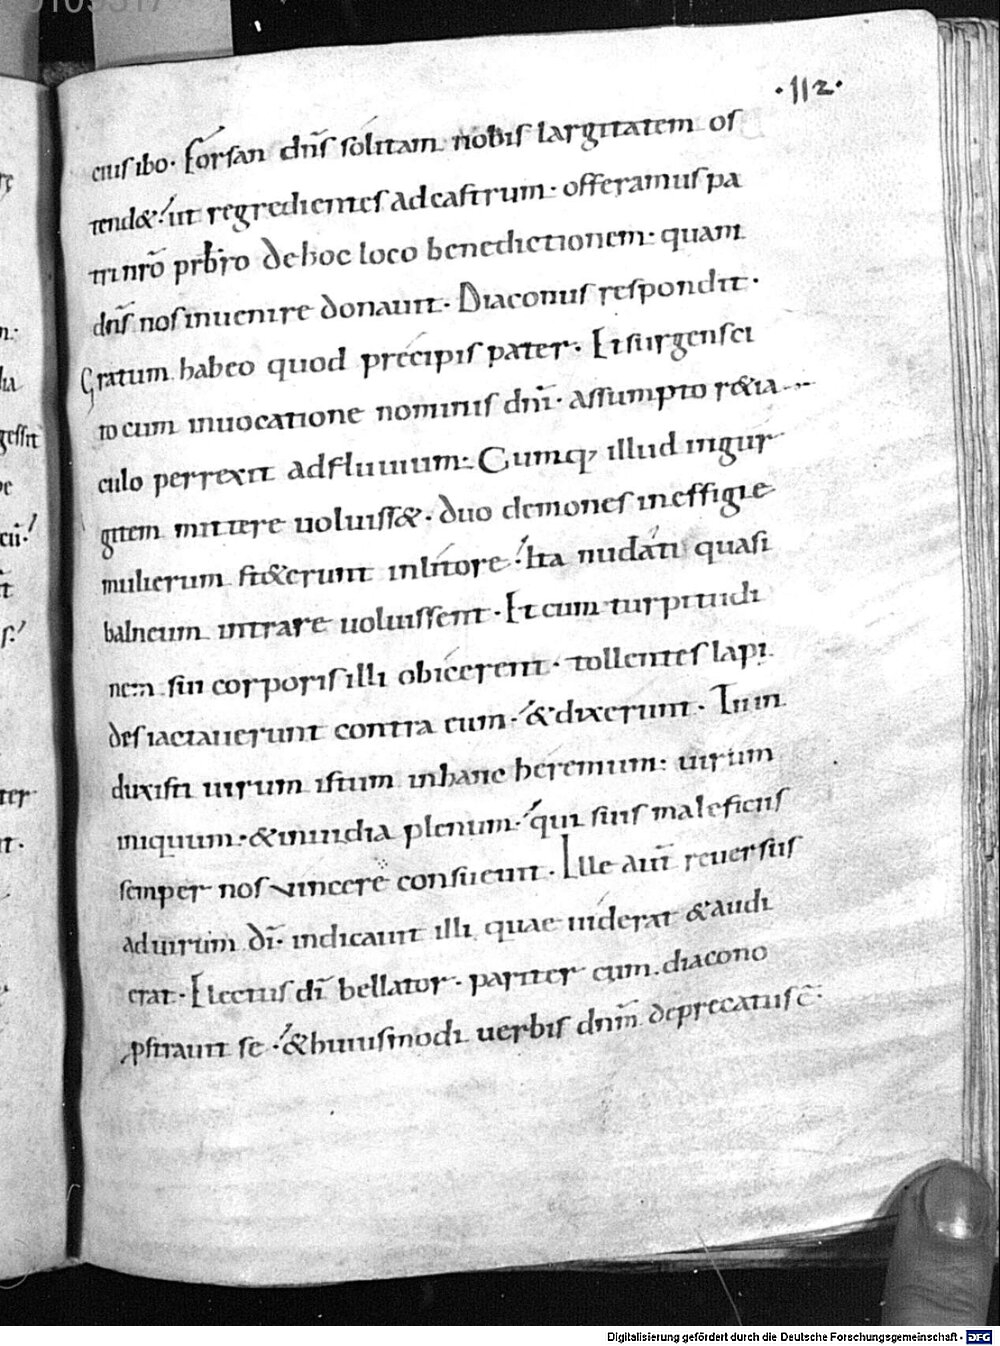 ·112·
eius ibo· Forsan dn̄s sólitam nobis largitatem os
tend&· út regredientes ad castrum· offeramus pa
tri nrō prb̄ro de hoc loco benedictionem· quam
dn̄s nos inuenire donauit· Diaconus respondit·
Gratum habeo quod precipis pater· Et surgens ci
to cum inuocatione nominis dn̄i· assumpto r&ia
culo perrexit ad fluuium· Cumq; illud in gur
gitem mittere uoluiss&· duo demones in effigie
mulierum st&erunt in lítore· Ita nudáti quasi
balneum intrare uoluissent· Et cum turpitudi
nem sui corporis illi obícerent· tollentes lapi
des iactauerunt contra eum· & dixerunt· Tu in
duxisti uirum istum in hanc heremum· uirum
iniquum· & inuidia plenum· qui suis maleficiis
semper nos uincere consueuit· Ille aut̄ reuersus
ad uirum dī· indicauit illi quae uíderat & audi
erat· Electus dī bellator· pariter cum diacono
ꝓstrauit se· & huiusmodi uerbis dnm̄ deprecatus ē·
Digitalisierung gefördert durch die Deutsche Forschungsgemeinschaft - DFG